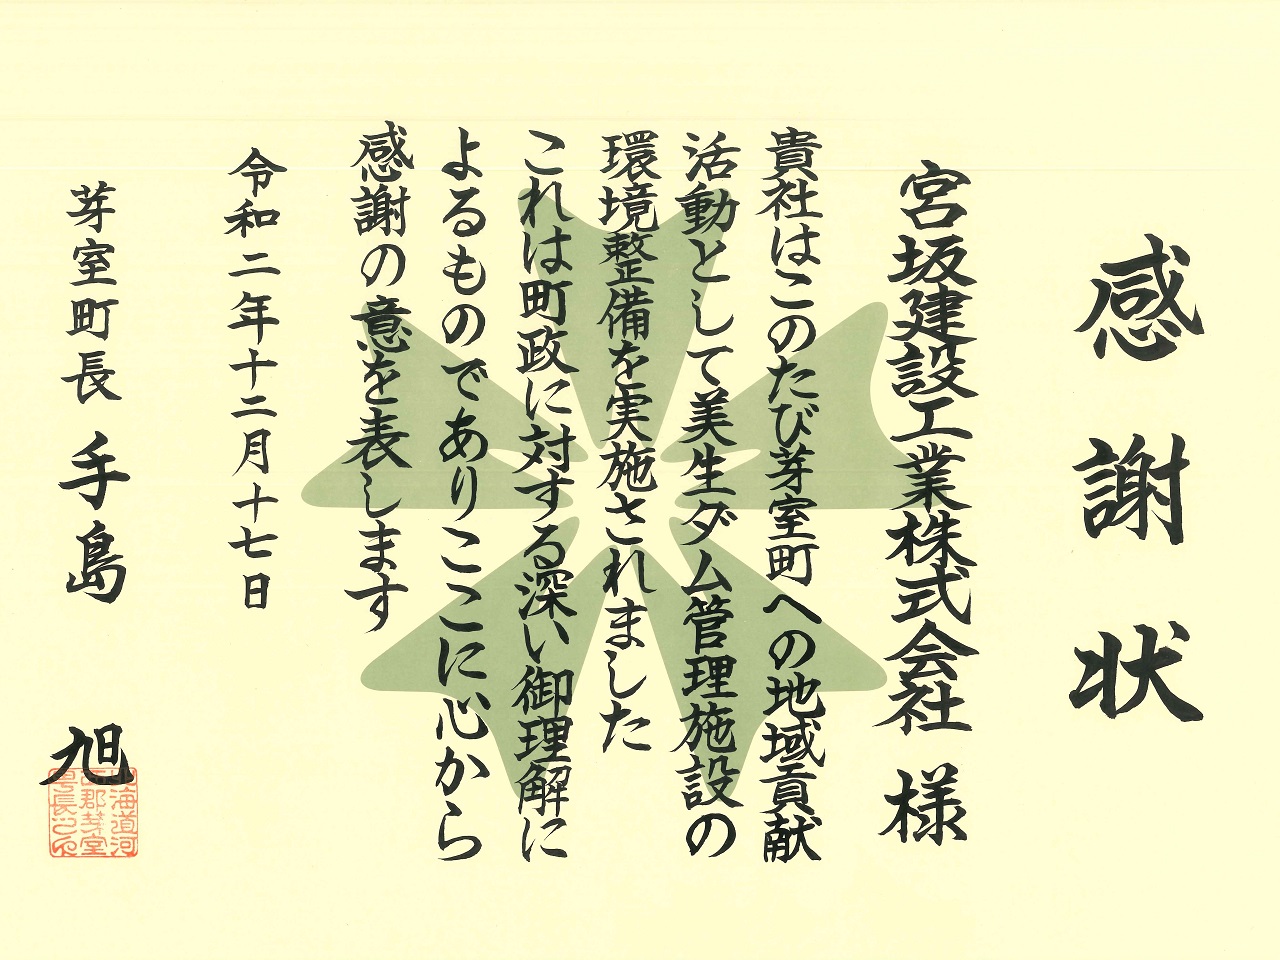 感謝状
宮坂建設工業株式会社 様
貴社はこのたび芽室町への地域貢献
活動として美生ダム管理施設の
環境整備を実施されました
これは町政に対する深い御理解に
よるものでありここに心から
感謝の意を表します
令和二年十二月十七日
芽室町長 手島 旭